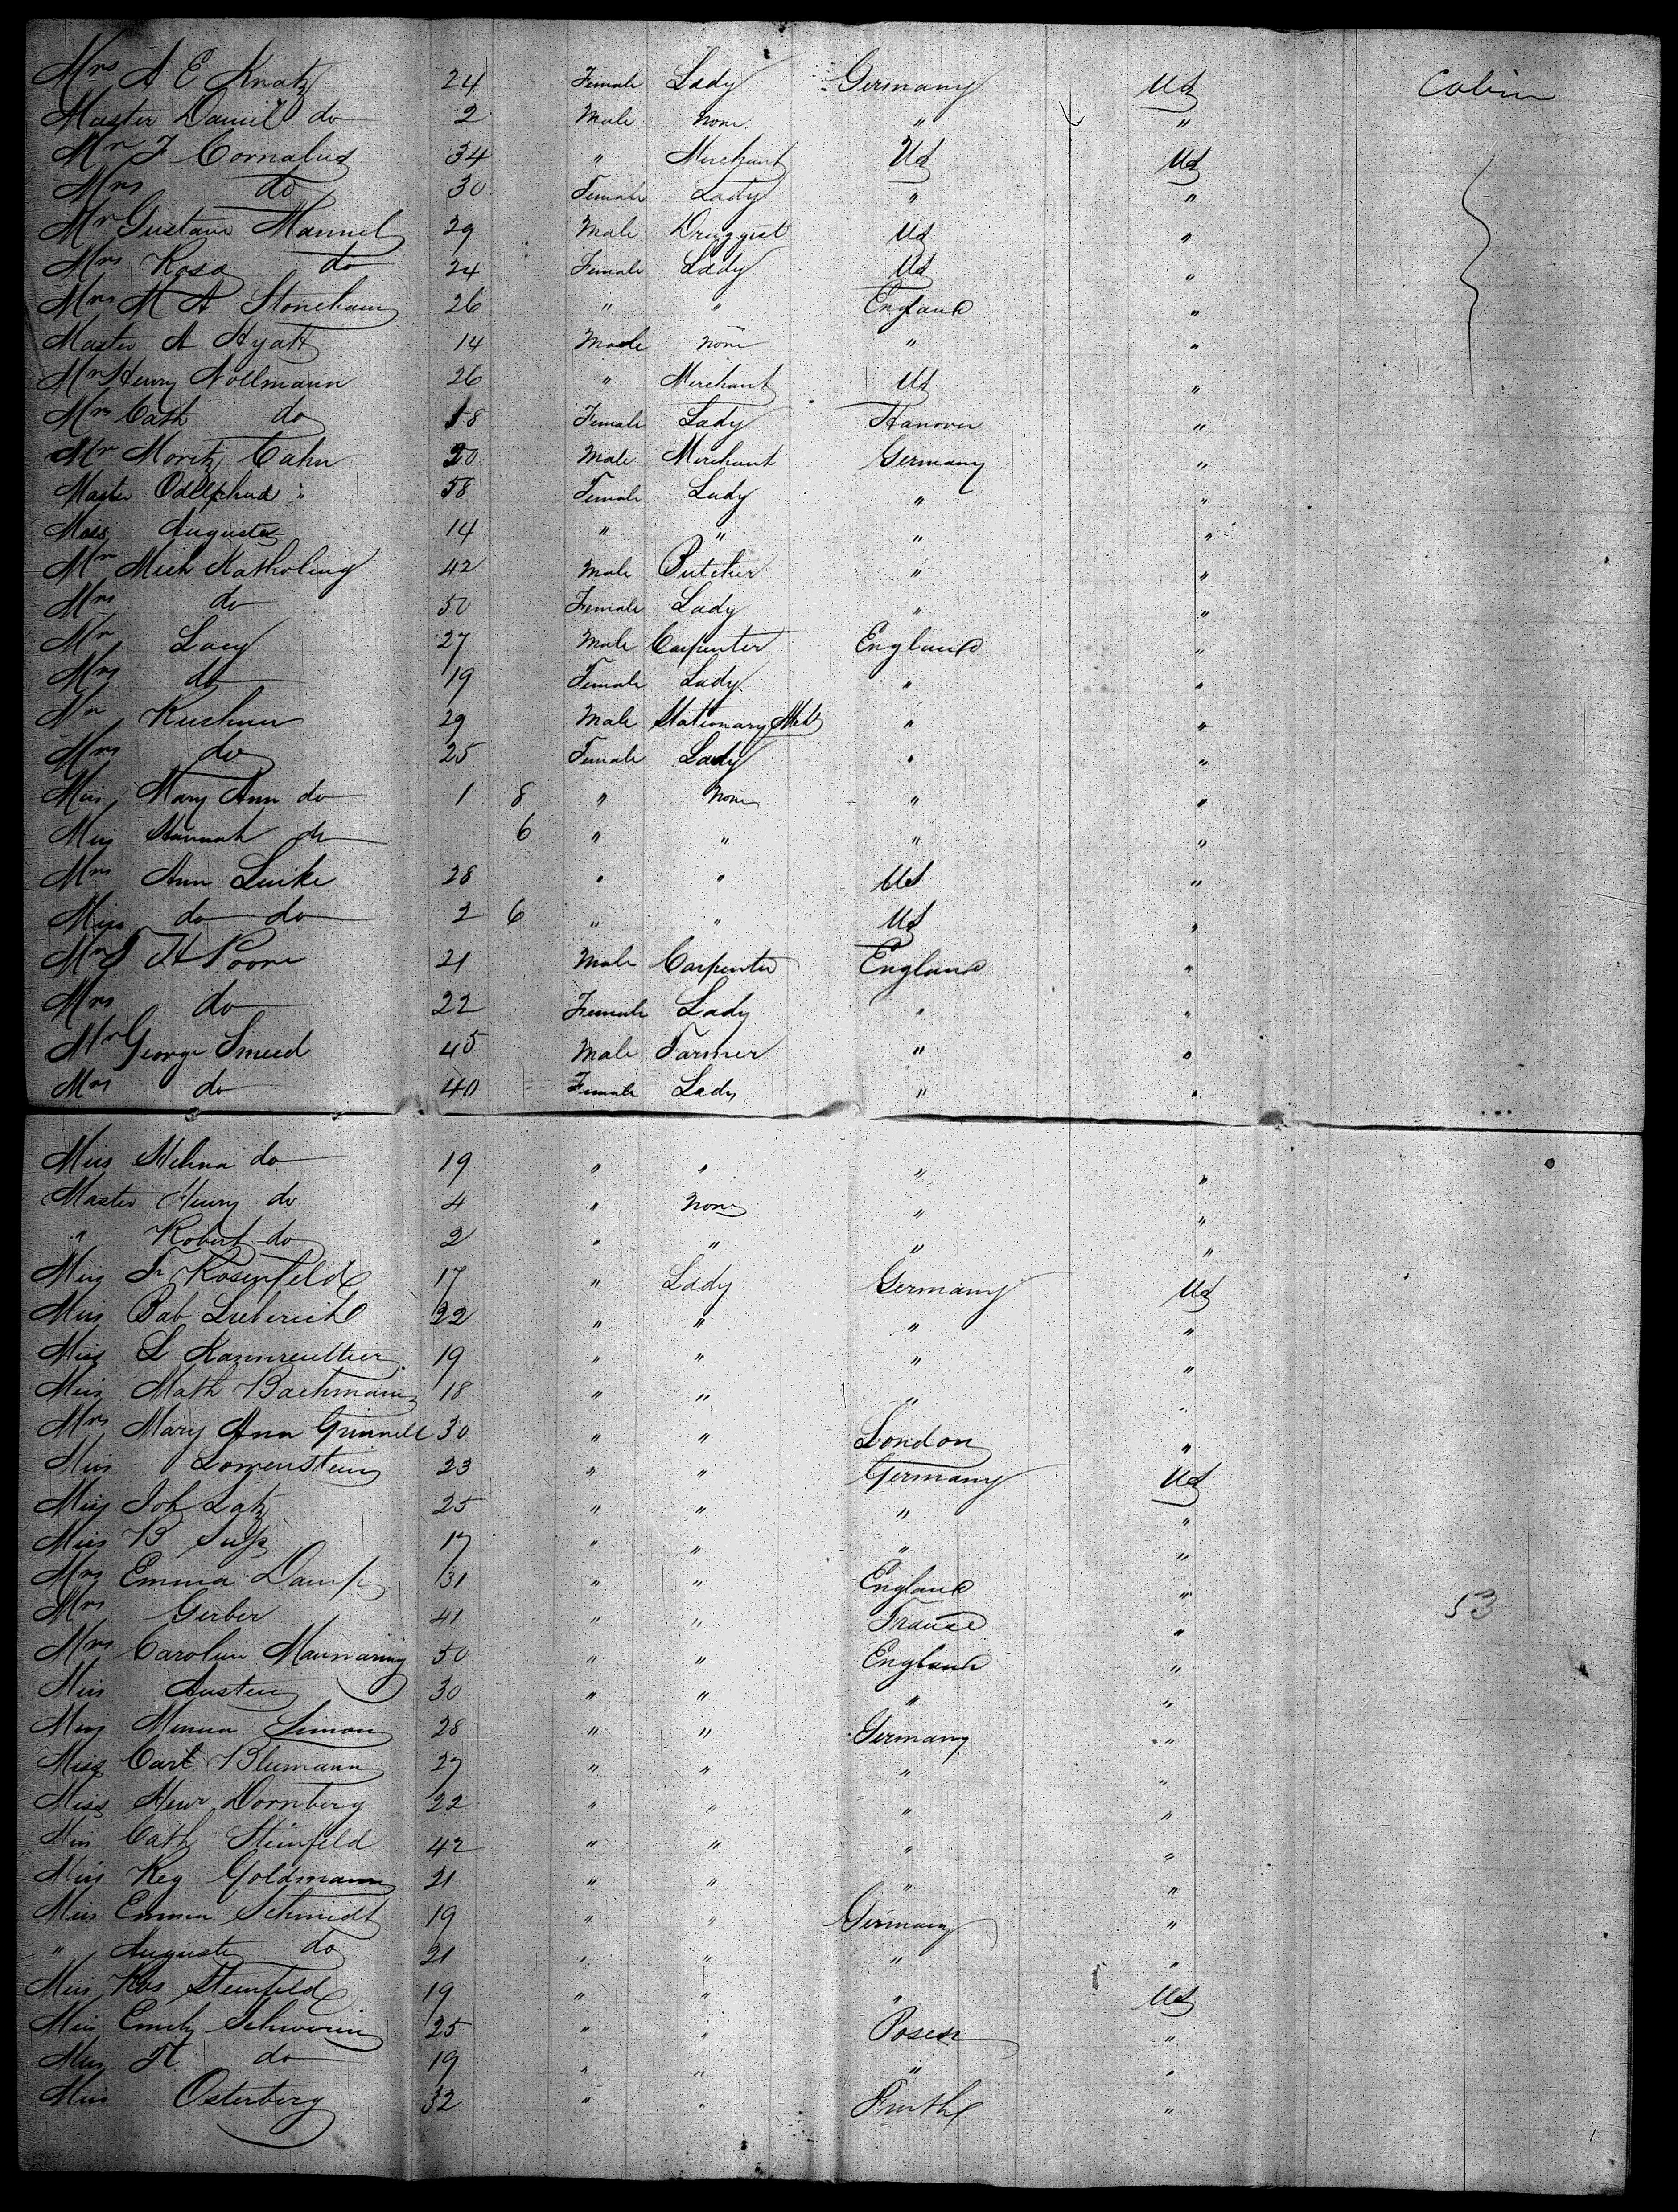 Mrs A E Knatz 24 Female Lady Germany US Cabin
Master Daniel do 2 Male none " "
Mr F Cornalus 34 " Merchant US US
Mrs do 30 Female Lady " "
Mr Gustave Mannel 29 Male Druggist US "
Mrs Rosa do 24 Female Lady US "
Mrs M A Stoneham 26 " " England "
Master A Hyatt 14 Male none " "
Mr Henry Nollmann 26 " Merchant US "
Mrs Cath do 18 Female Lady Hanover "
Mr Moritz Cahn 20 Male Merchant Germany "
Master " 58 Female Lady " "
Miss Augusta 14 " " " "
Mr Mich Katholing 42 Male Butcher " "
Mrs do 50 Female Lady " "
Mr Lacy 27 Male Carpenter England "
Mrs do 19 Female Lady " "
Mr Kushner 29 Male Stationary " "
Mrs do 25 Female Lady " "
Miss Mary Ann do 1 8 " none " "
Miss Hannah do 6 " " " "
Mrs Ann Luike 28 " " US "
Miss do do 2 6 " " US "
Mr T H Poore 21 Male Carpenter England "
Mrs do 22 Female Lady " "
Mr George Smeed 45 Male Farmer " "
Mrs do 40 Female Lady " "
Miss Helena do 19 " " " "
Master Henry do 4 " none " "
" Robert do 2 " " " "
Miss Fr Rosenfeld 17 " Lady Germany US
Miss Bab Lieberich 22 " " " "
Miss L Kannreuther 19 " " " "
Miss Math Bachmann 18 " " " "
Mrs Mary Ann Grinnell 30 " " London "
Miss Lowenstein 23 " " Germany US
Miss Joh Latz 25 " " " "
Miss B Suss 17 " " " "
Mrs Emma Damp 31 " " England "
Mrs Gerber 41 " " France " 53
Mrs Carolin Mannaring 50 " " England "
Miss Austen 30 " " " "
Miss Minna Simon 28 " " Germany "
Miss Carl Blumann 27 " " " "
Miss Henr Dornberg 22 " " " "
Miss Cath Steinfeld 42 " " " "
Miss Reg Goldmann 21 " " " "
Miss Emma Schmidt 19 " " Germany "
" Auguste do 21 " " " "
Miss Ros Steinfeld 19 " " " US
Miss Emily Schwerin 25 " " Posen "
Miss H do 19 " " " "
Miss Osterberg 32 " " Furth "